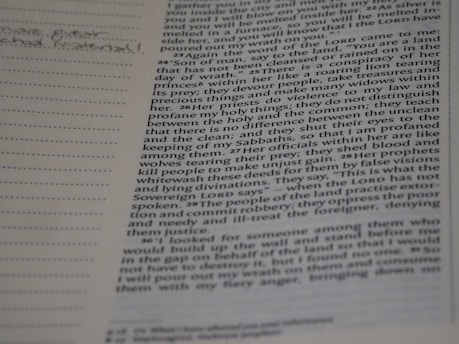 I gather you in my
you and I will blow on you with my fiery
side her. 22 As silver is
melted in a furnace, so you will be melted in-
side her, and you will know that I the LORD have
poured out my wrath on you.'"
23 Again the word of the LORD came to me:
24 "Son of man, say to the land, 'You are a land
that has not been cleansed or rained on in the
day of wrath.' 25 There is a conspiracy of her
princes b within her like a roaring lion tearing
its prey; they devour people, take treasures and
precious things and make many widows within
her. 26 Her priests do violence to my law and
profane my holy things; they do not distinguish
between the holy and the common; they teach
that there is no difference between the unclean
and the clean; and they shut their eyes to the
keeping of my Sabbaths, so that I am profaned
among them. 27 Her officials within her are like
wolves tearing their prey; they shed blood and
kill people to make unjust gain. 28 Her prophets
whitewash these deeds for them by false visions
and lying divinations. They say, 'This is what the
Sovereign LORD says' – when the LORD has not
spoken. 29 The people of the land practise extor-
tion and commit robbery; they oppress the poor
and needy and ill-treat the foreigner, denying
them justice.
30 "I looked for someone among them who
would build up the wall and stand before me
in the gap on behalf of the land so that I would
not have to destroy it, but I found no one. 31 So
I will pour out my wrath on them and consume
them with my fiery anger, bringing down on